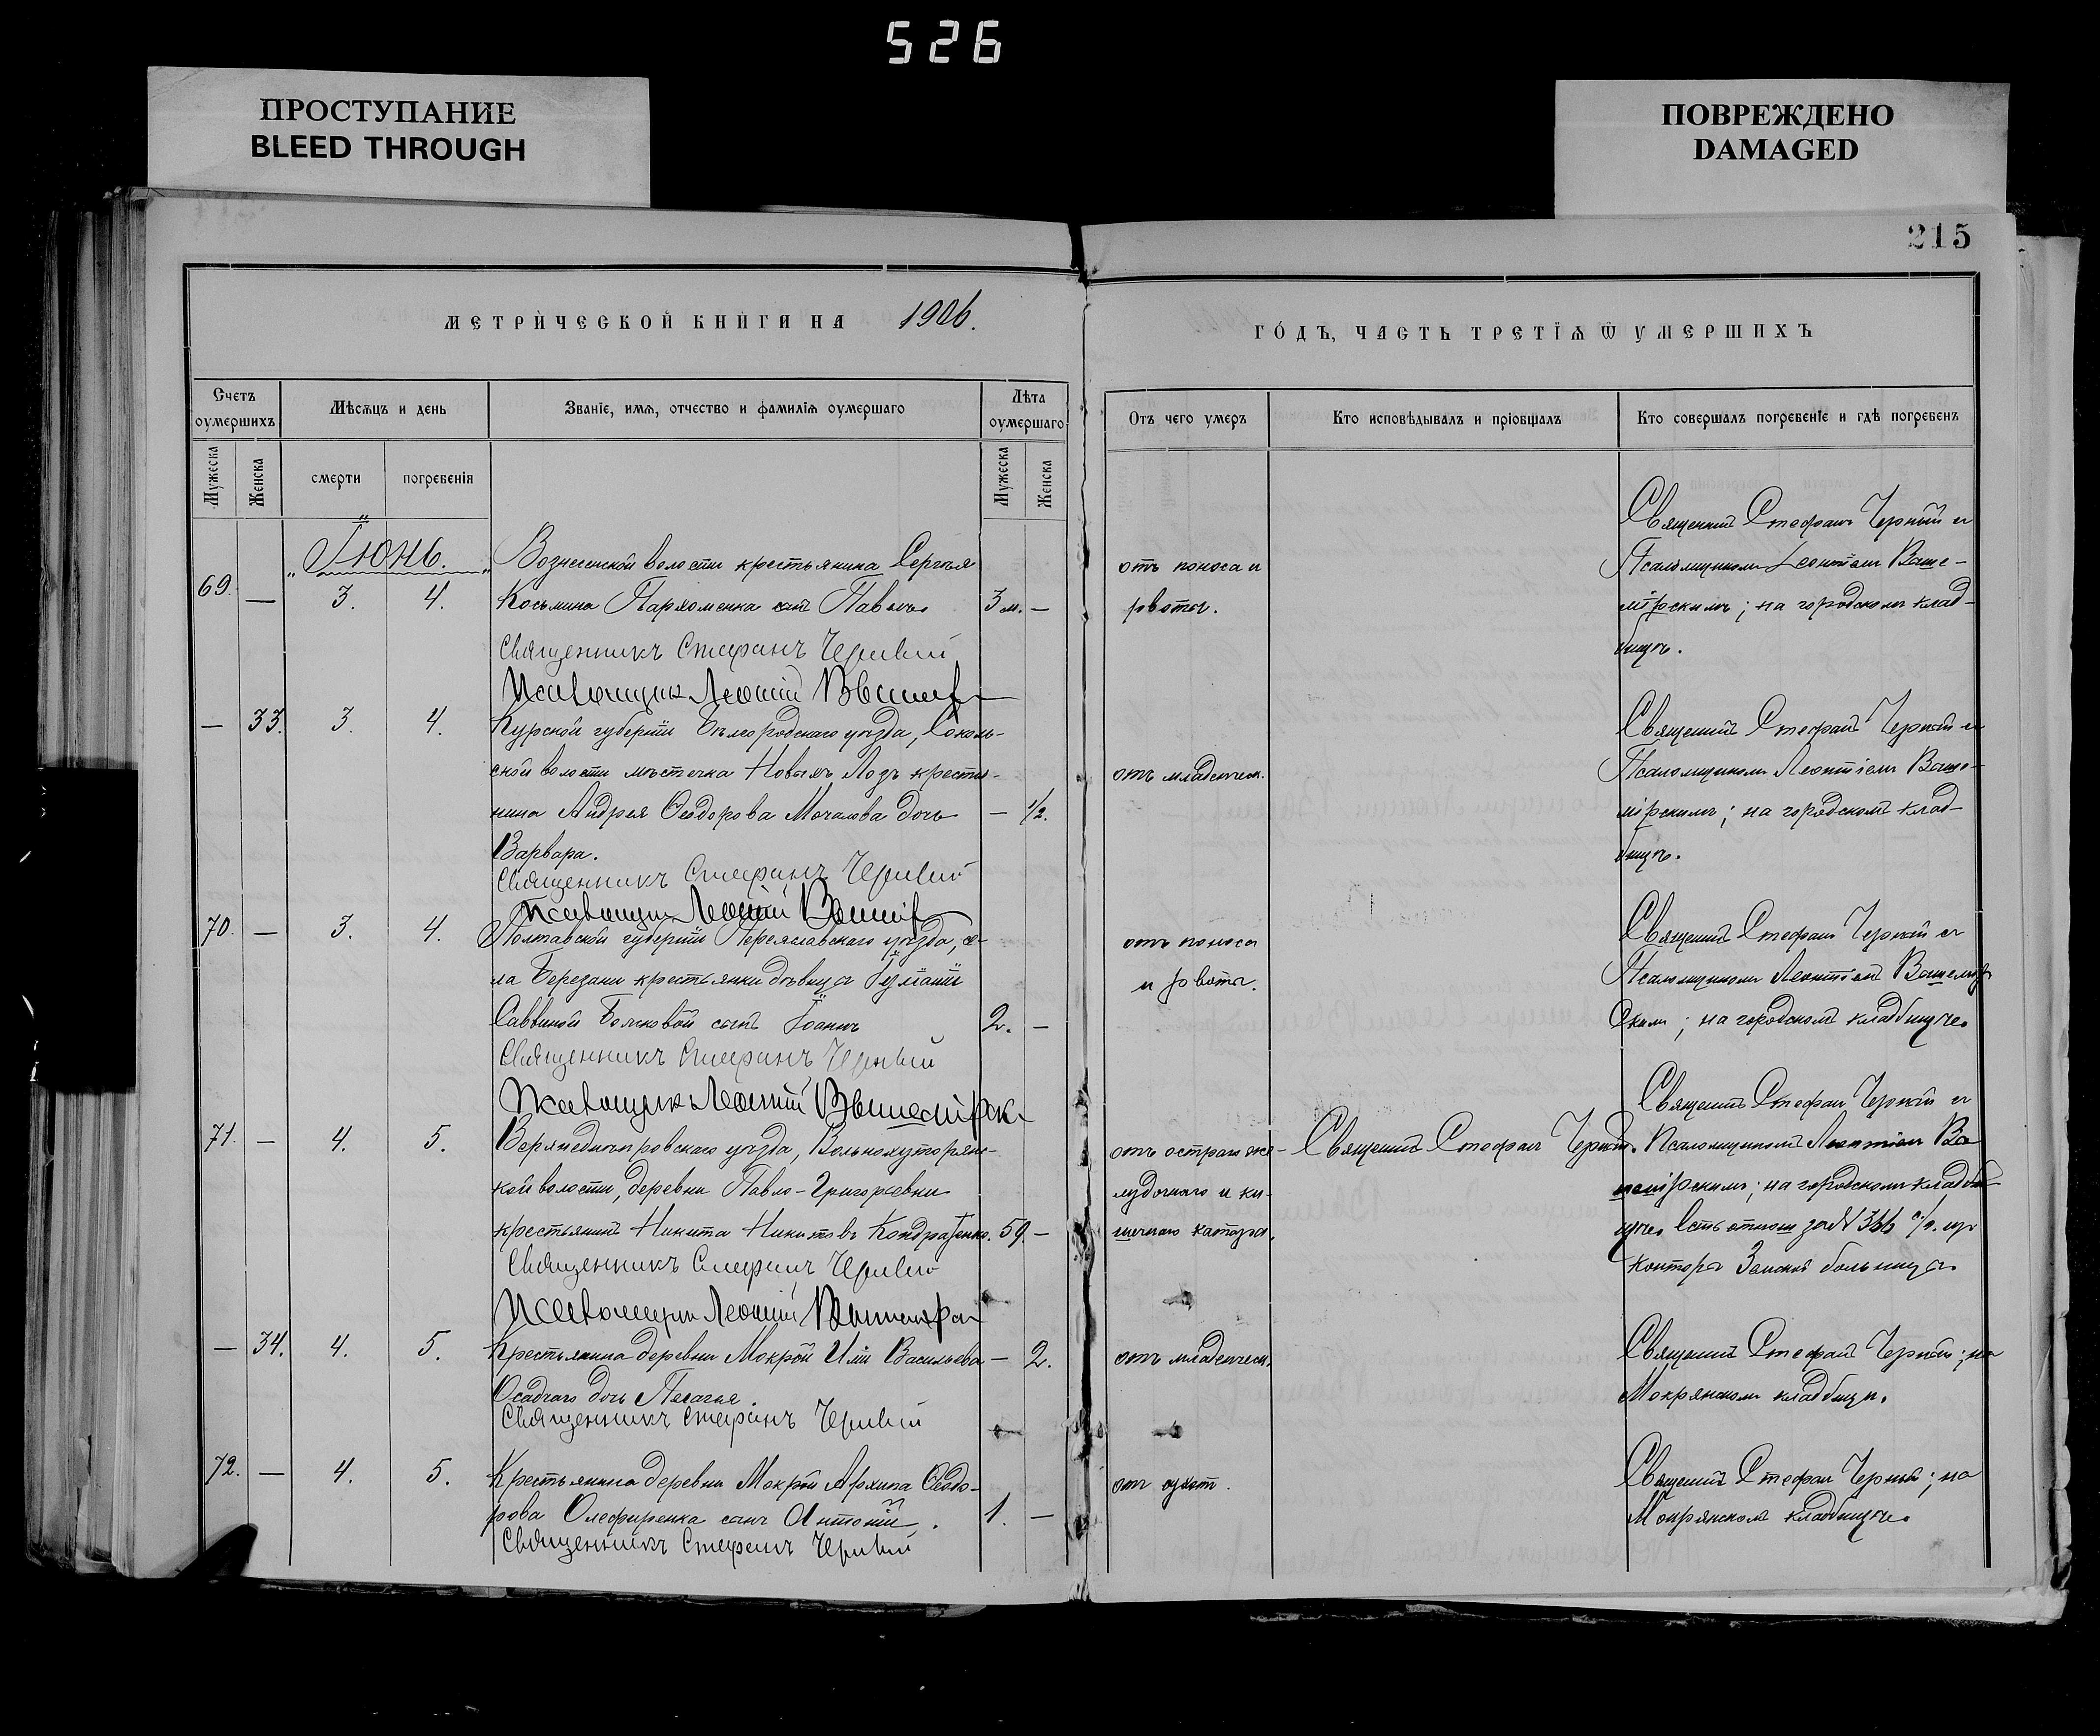 526
ПРОСТУПАНИЕ
BLEED THROUGH
ПОВРЕЖДЕНО
DAMAGED
215
МЕТРИЧЕСКОЙ КНИГИ НА 1906.
ГОДЪ, ЧАСТЬ ТРЕТІЯ Ѿ УМЕРШИХЪ
Счетъ оумершихъ
Мѣсяцъ и день
Званіе, имя, отчество и фамилія оумершаго
Лѣта оумершаго
Мужеска
Женска
смерти
погребенія
Мужеска
Женска
Отъ чего умеръ
Кто исповѣдывалъ и пріобщалъ
Кто совершалъ погребеніе и гдѣ погребенъ
„Іюнь.„
69. — 3. 4.
Вознесенской волости крестьянина Сергѣя
Косьмина Пархоменка сынъ Павелъ 3 м. —
Священникъ Стефанъ Черный
Псаломщикъ Леонтій
отъ поноса и
рвоты.
Священникъ Стефанъ Черный и
Псаломщикомъ Леонтіем Выше-
мірскимъ; на городскомъ клад-
бищѣ.
— 33. 3. 4.
Курской губерніи Бѣлгородскаго уѣзда,
ской волости мѣстечка Новыхъ Лозъ крестья-
нина Андрея Ѳеодорова Мочалова дочь — 1/2.
Варвара.
Священникъ Стефанъ Черный
Псаломщикъ Леонтій
отъ младенческ.
Священникъ Стефанъ Черный и
Псаломщикомъ Леонтіем Выше-
мірскимъ; на городскомъ клад-
бищѣ.
70. — 3. 4.
Полтавской губерніи Переяславскаго уѣзда, се-
ла Березани крестьянки дѣвицы
Саввиной сынъ Іоаннъ 2. —
Священникъ Стефанъ Черный
Псаломщикъ Леонтій Вышемірск
отъ поноса
и рвоты.
Священникъ Стефанъ Черный и
Псаломщикомъ Леонтіем Вышемір
скимъ; на городскомъ кладбищѣ.
71. — 4. 5.
Верхнеднѣпровскаго уѣзда, Вольнохуторян-
кой волости, деревни Павло-Григорьевки
крестьянинъ Никита Никитовъ Кондратенко. 59. —
Священникъ Стефанъ Черный
Псаломщикъ Леонтій
отъ остраго же-
лудочнаго и ки-
шечнаго катарра.
Священникъ Стефанъ Черный.
Священникъ Стефанъ Черный и
Псаломщикомъ Леонтіем Вы
шемірскимъ; на городскомъ кладби
щѣ. Есть отнош за № 366 изъ
конторы Земской больницы.
— 34. 4. 5.
Крестьянина деревни Мокрой Иліи Васильева — 2.
Осадчаго дочь Пелагея.
Священникъ Стефанъ Черный
отъ младенческ.
Священникъ Стефанъ Черный; на
Мокрянскомъ кладбищѣ.
72. — 4. 5.
Крестьянина деревни Мокрой Архипа Ѳеодо-
рова Олефиренка сынъ Антоній. 1. —
Священникъ Стефанъ Черный
отъ
Священникъ Стефанъ Черный; на
Мокрянскомъ кладбищѣ.